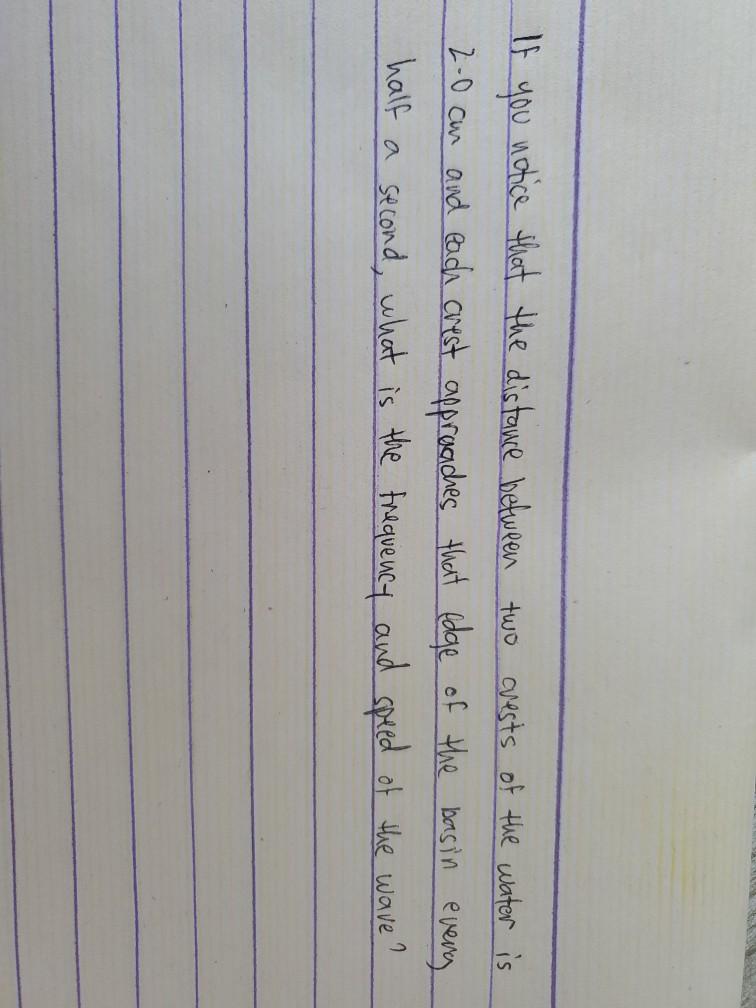 If you notice that the distance between two crests of the water is
2.0 cm and each crest approaches that edge of the basin every
half a second, what is the frequency and speed of the wave?